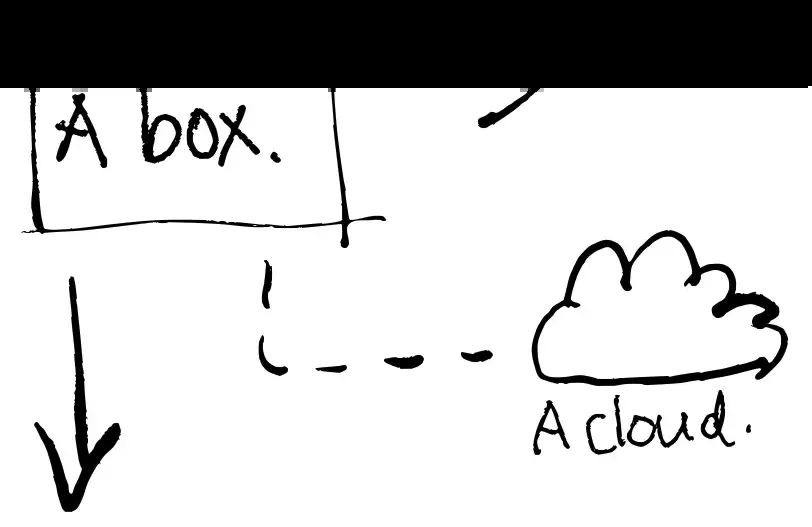 A box.
A cloud.